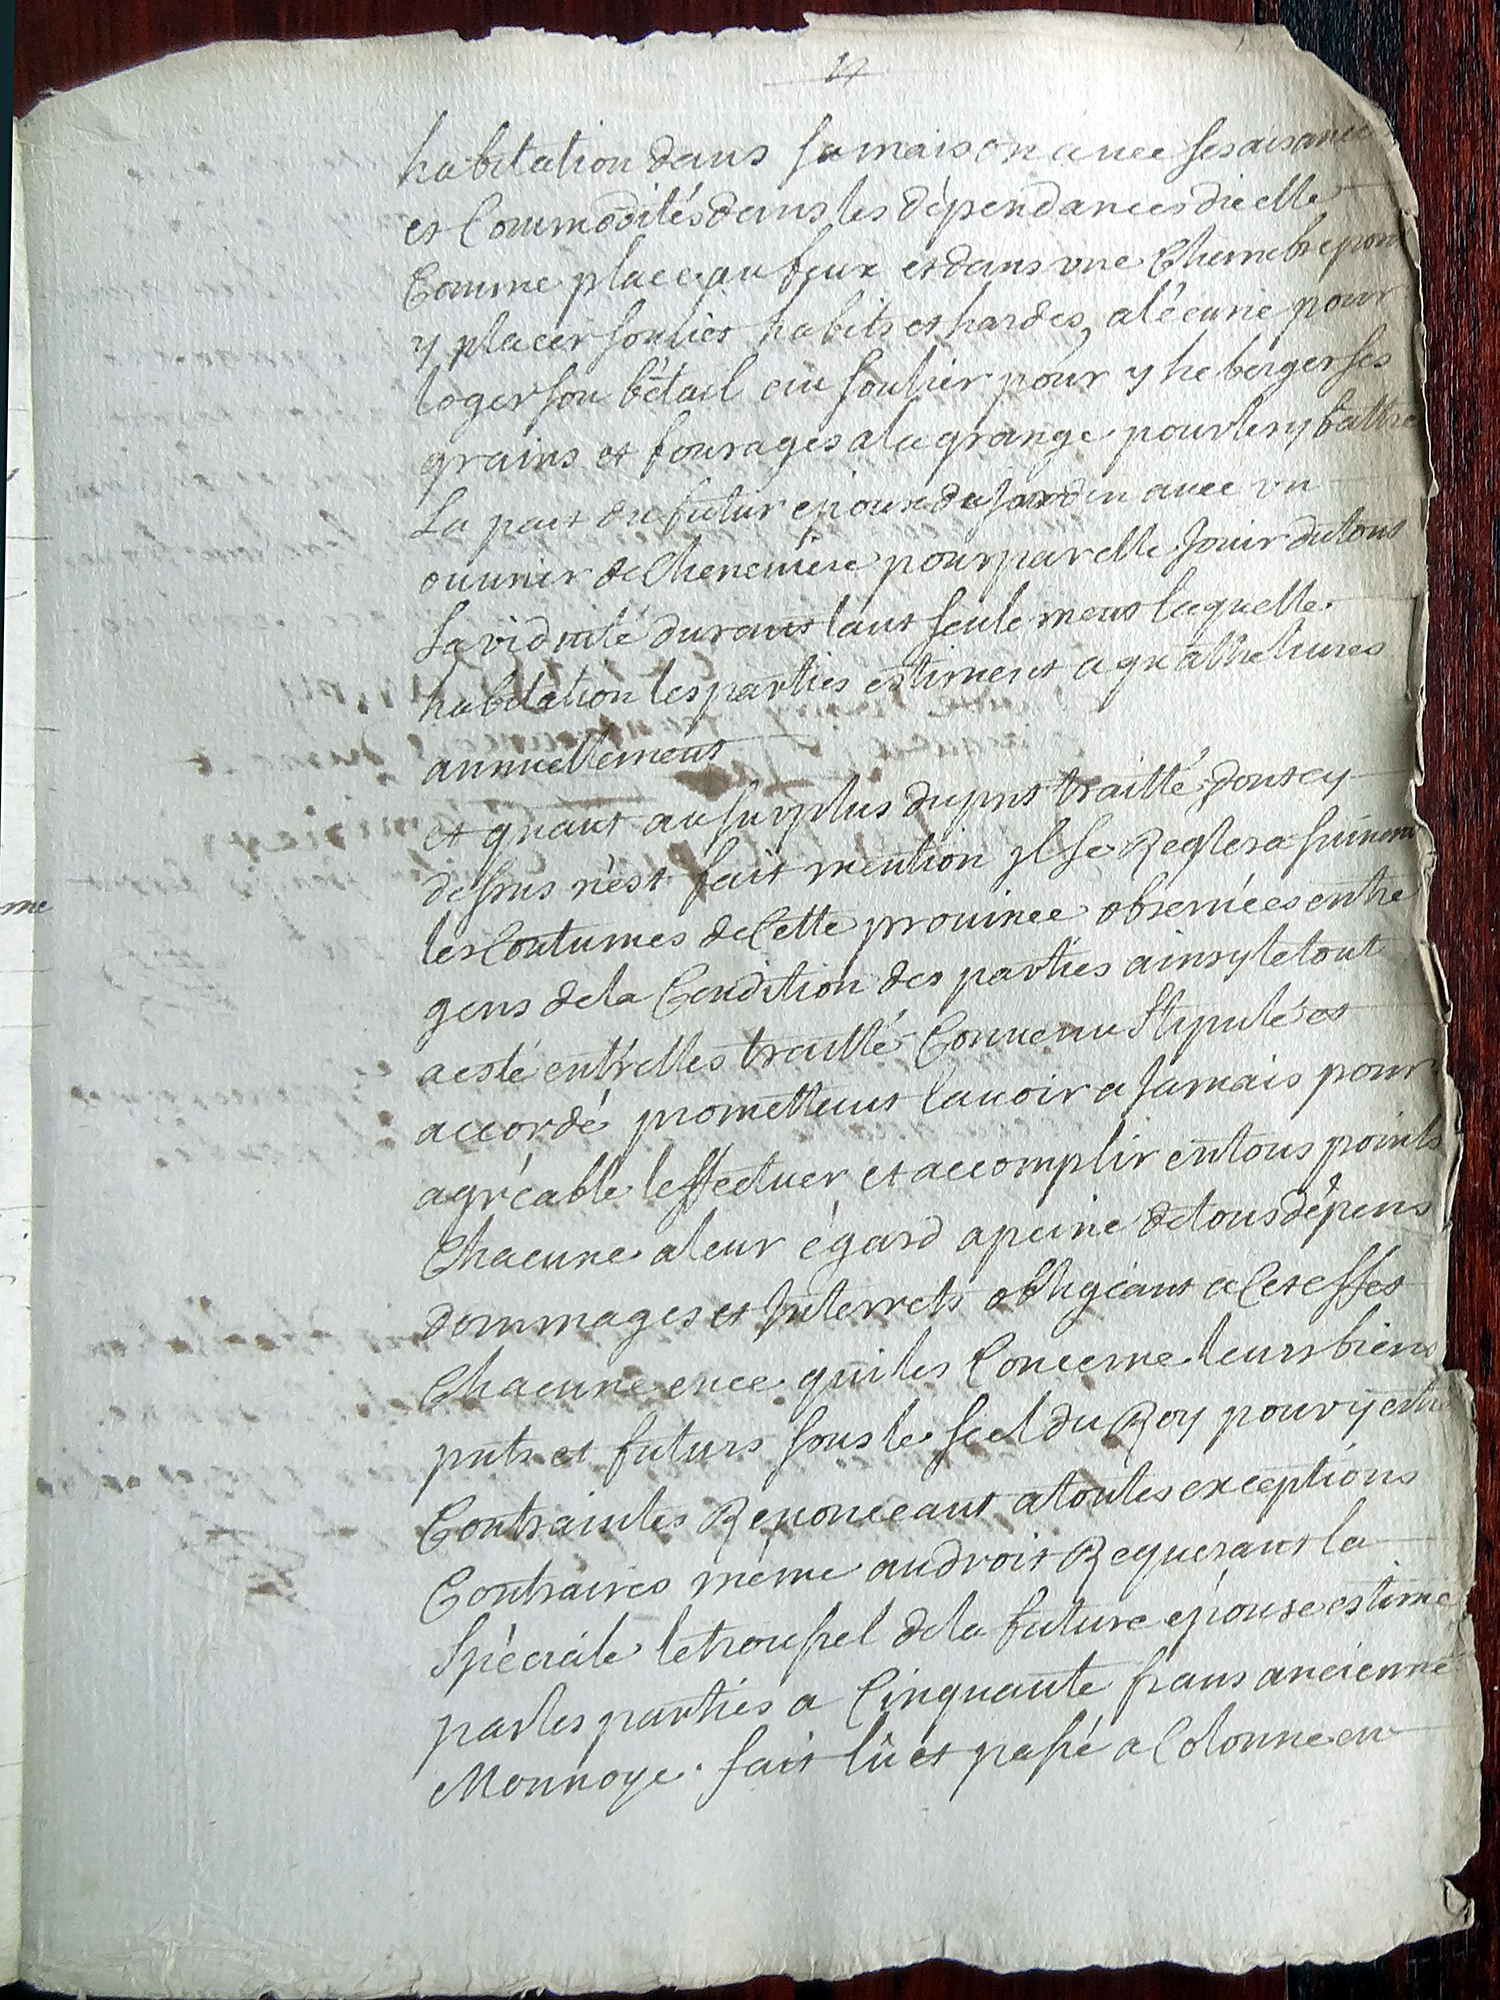 habitation dans sa maison avec ses aisances
et Commodités dans les dépendances dicelle
Comme place au feux et dans une Chambre pour
y placer son lict habits et hardes, a lécurie pour
loger son bétail au soulier pour y heberger ses
grains et fourages a la grange pour les y battre
La part du futur epoux du Jardin avec un
ouvrier de Chenevière pour par elle Jouir du tout
sa viduité durant tant seulement laquelle
habitation les parties estiment a quatthe livres
annuellement
et quant au surplus du pnt traitté dont cy
dessus n'est fait mention jl se Reglera suivant
les Coutumes de Cette province observées entre
gens de la Condition des parties ainsy le tout
a esté entr'elles traitté Convenu Stipulé et
accordé promettant lavoir a Jamais pour
agréable leffectuer et accomplir en tous points
Chacune a leur égard a peine de tous dépens
dommages et Interrets obligéant a Cet effet
Chacune en ce qui les Concerne leurs biens
pnts et futurs sous le scel du Roy pour y estre
Contraintes Renonceant a toutes exceptions
Contraires même au droit Requerant la
Spéciale le troussel de la future épouse estimé
par les parties a Cinquante frans ancienne
Monnoye. fait lû et passé a Colonne en